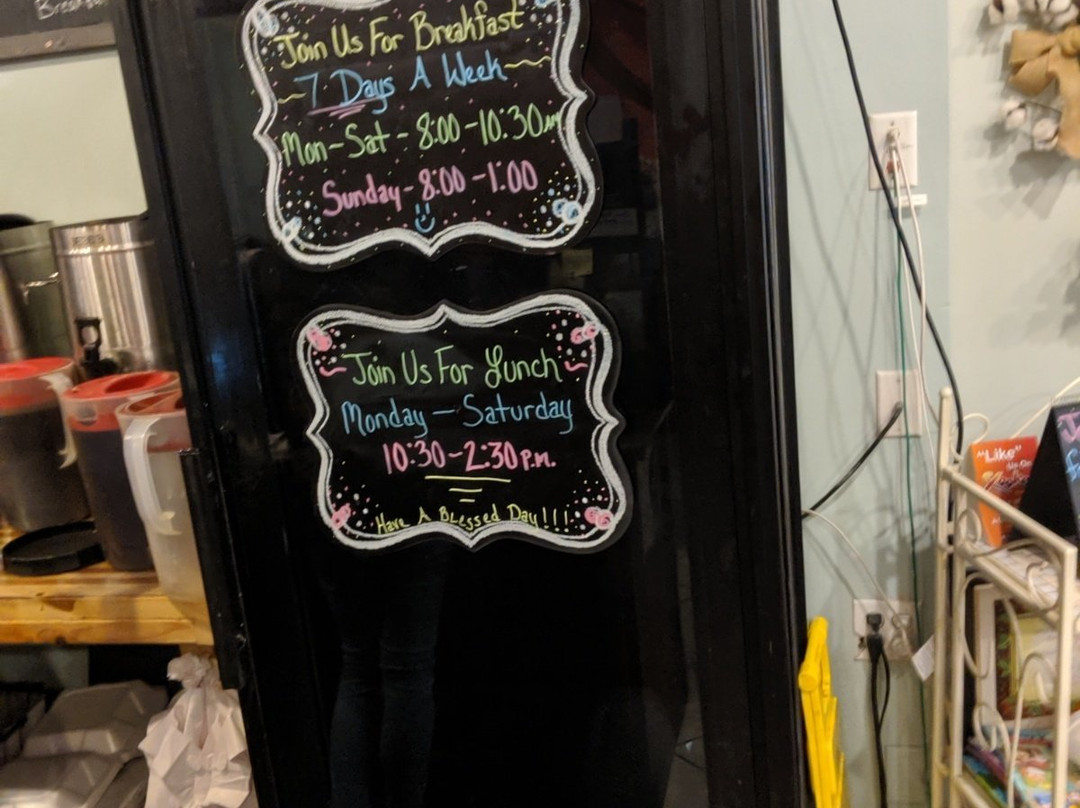 Join Us For Breakfast
7 Days A Week
Mon-Sat - 8:00 - 10:30am
Sunday - 8:00 - 1:00
Join Us For Lunch
Monday - Saturday
10:30 - 2:30 P.M.
Have A Blessed Day!!!
"Like"